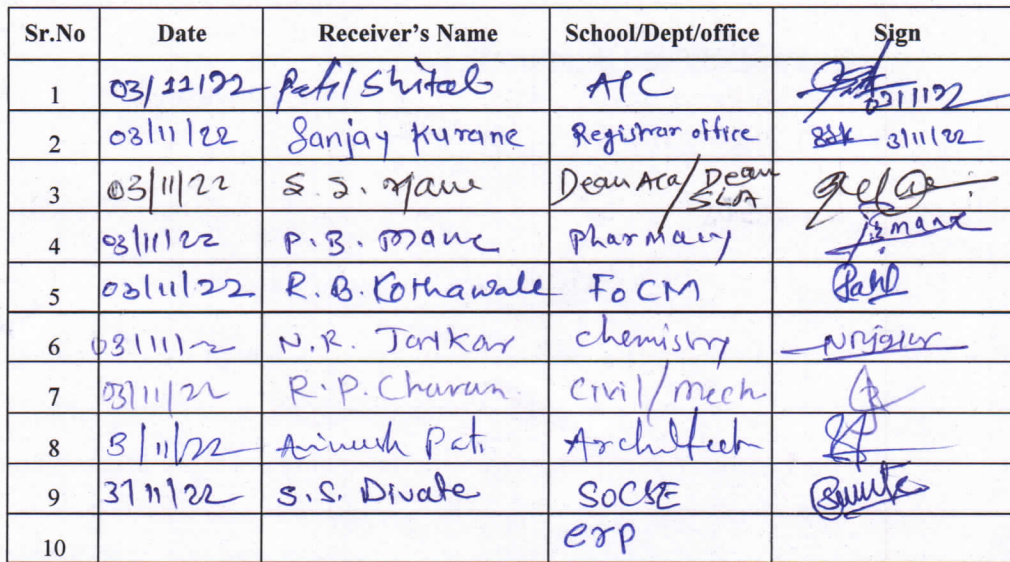 Sr.No Date Receiver's Name School/Dept/office Sign
1 03/11/22 Patil Shital A/C 03/11/22
2 03/11/22 Sanjay Kurane Registrar office SSK 3/11/22
3 03/11/22 S. S. Mane Dean Aca/Dean SLA
4 03/11/22 P. B. Mane pharmacy
5 03/11/22 R. B. Kothawale FoCM Patil
6 03/11/22 N. R. chemistry
7 03/11/22 R. P. Chavan Civil/Mech
8 3/11/22 Architect
9 3/11/22 S. S. Divate SoCSE
10 erp